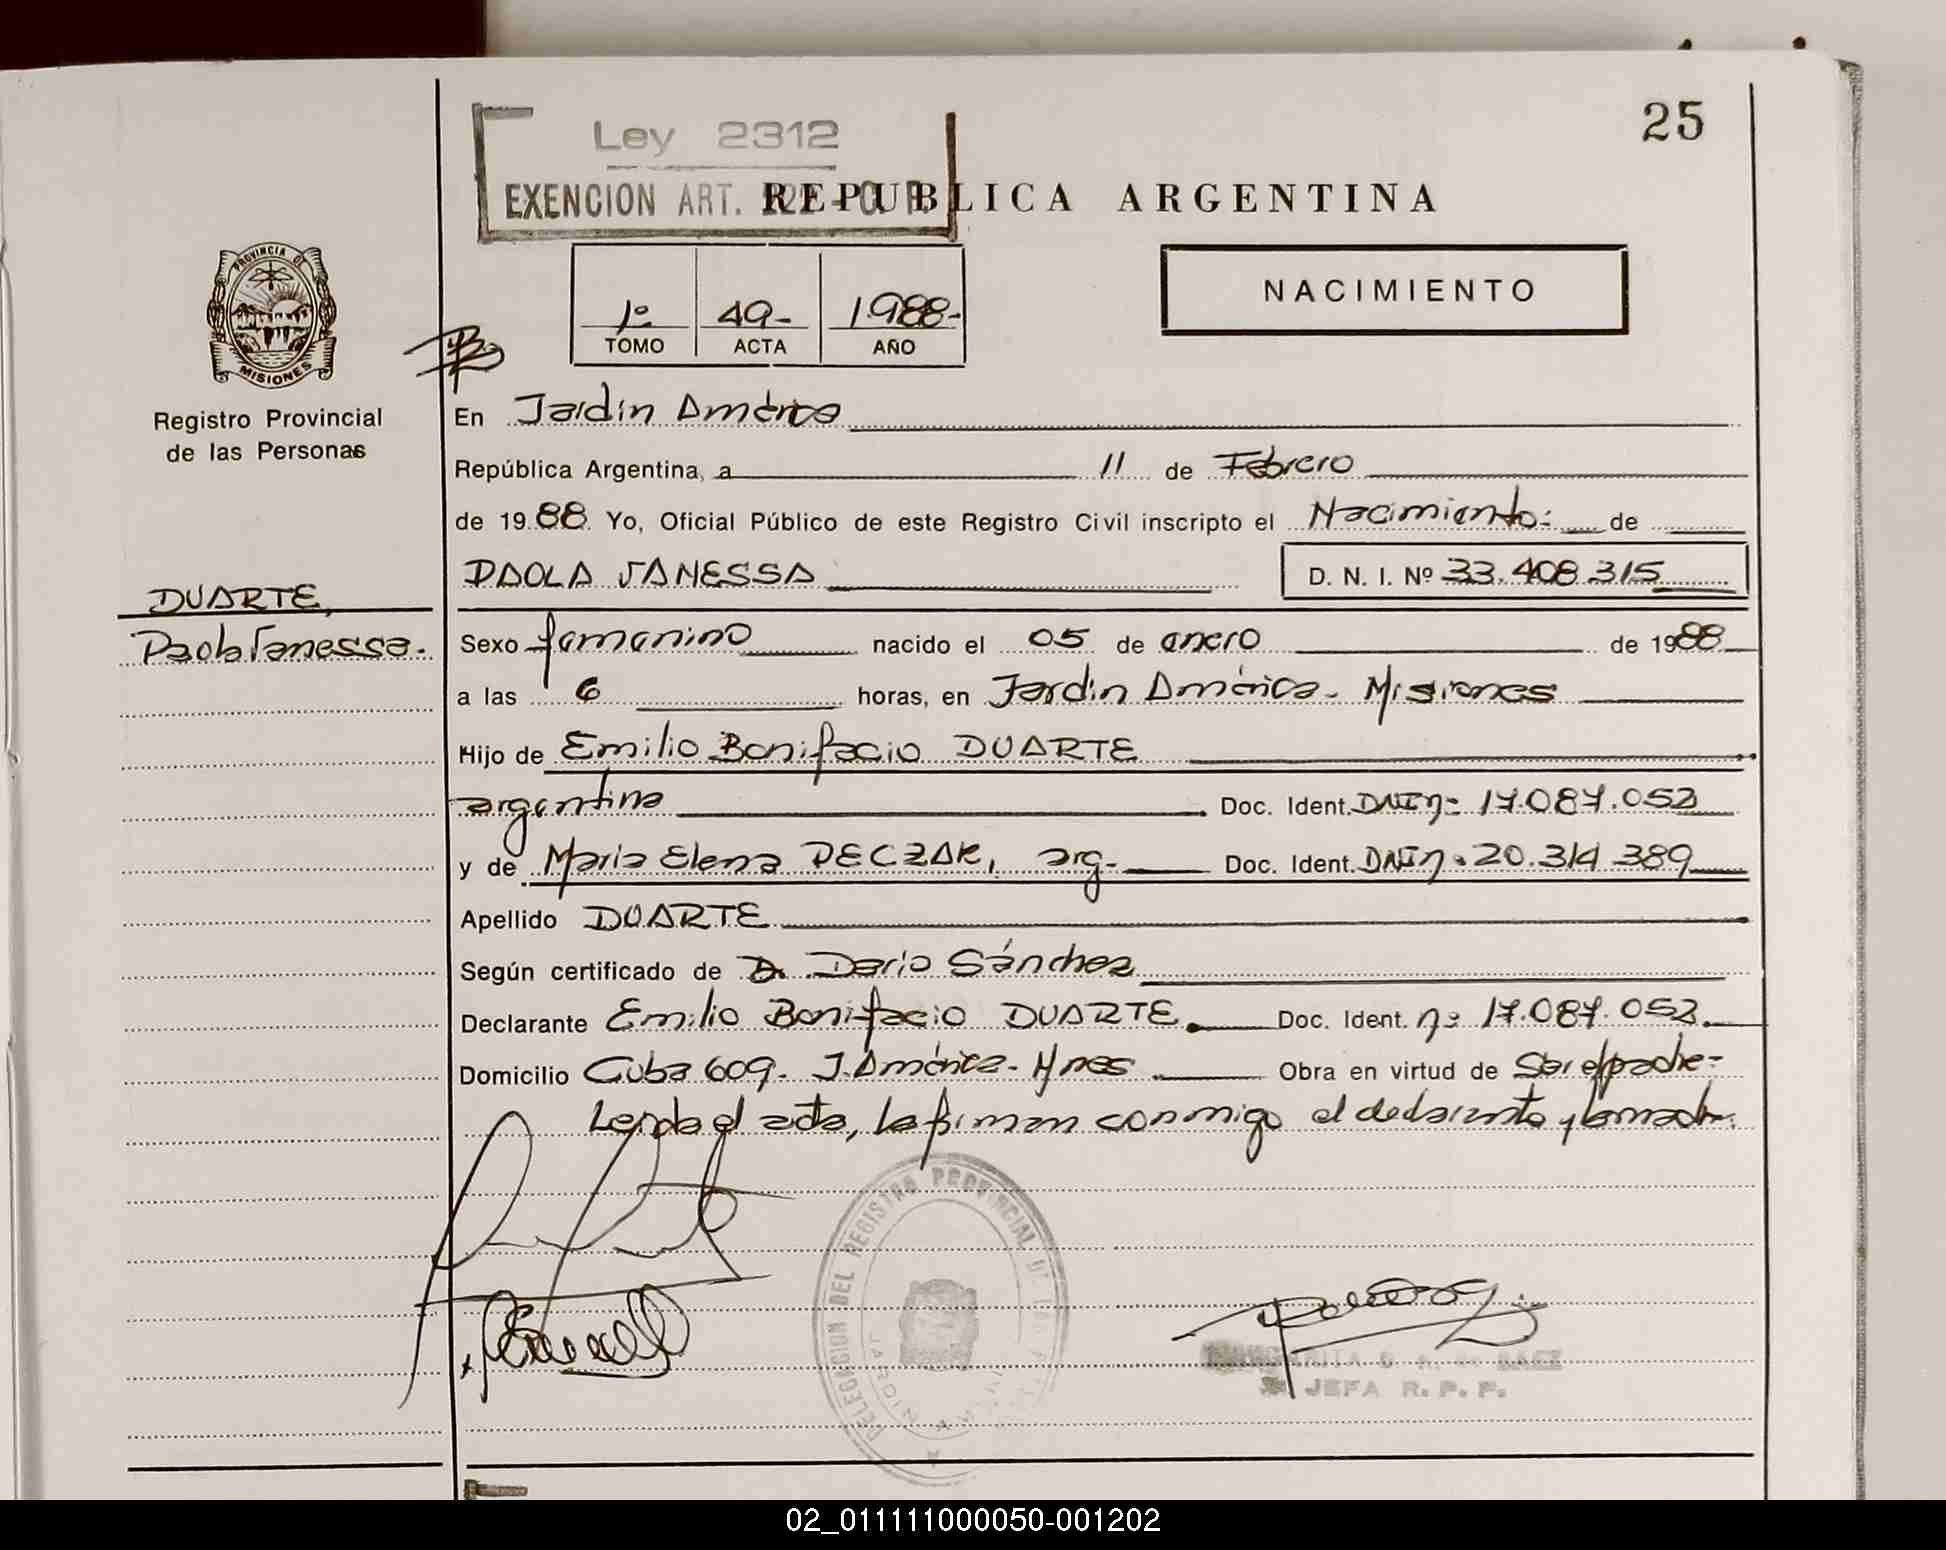 25
Ley 2312
EXENCION ART. 122 - C. F.
REPUBLICA ARGENTINA
PROVINCIA DE
MISIONES
Registro Provincial
de las Personas
1º 49- 1.988-
TOMO ACTA AÑO
NACIMIENTO
En Jardín América
República Argentina, a 11 de Febrero
de 1988 Yo, Oficial Público de este Registro Civil inscripto el Nacimiento: de
PAOLA VANESSA D. N. I. Nº 33.408.315
DUARTE,
Paola Vanessa.
Sexo femenino nacido el 05 de enero de 1988
a las 6 horas, en Jardín América - Misiones
Hijo de Emilio Bonifacio DUARTE
argentina Doc. Ident. DNI nº 17.087.052
y de Maria Elena DECZAK, arg. Doc. Ident. DNI nº 20.314.389
Apellido DUARTE
Según certificado de Dr. Dario Sánchez
Declarante Emilio Bonifacio DUARTE. Doc. Ident. nº 17.087.052.
Domicilio Cuba 609. J. América - Mnes Obra en virtud de Ser el padre-
Leída el acta, la firman conmigo el declarante y la madre.
DELEGACION DEL REGISTRO PROVINCIAL DE LAS
MARGARITA BAEZ
JEFA R. P. P.
02_011111000050-001202